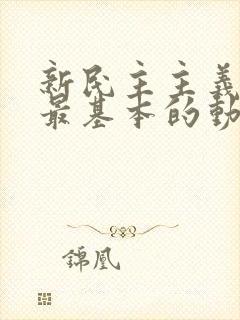 新民主主義
最基本的動
錦凰